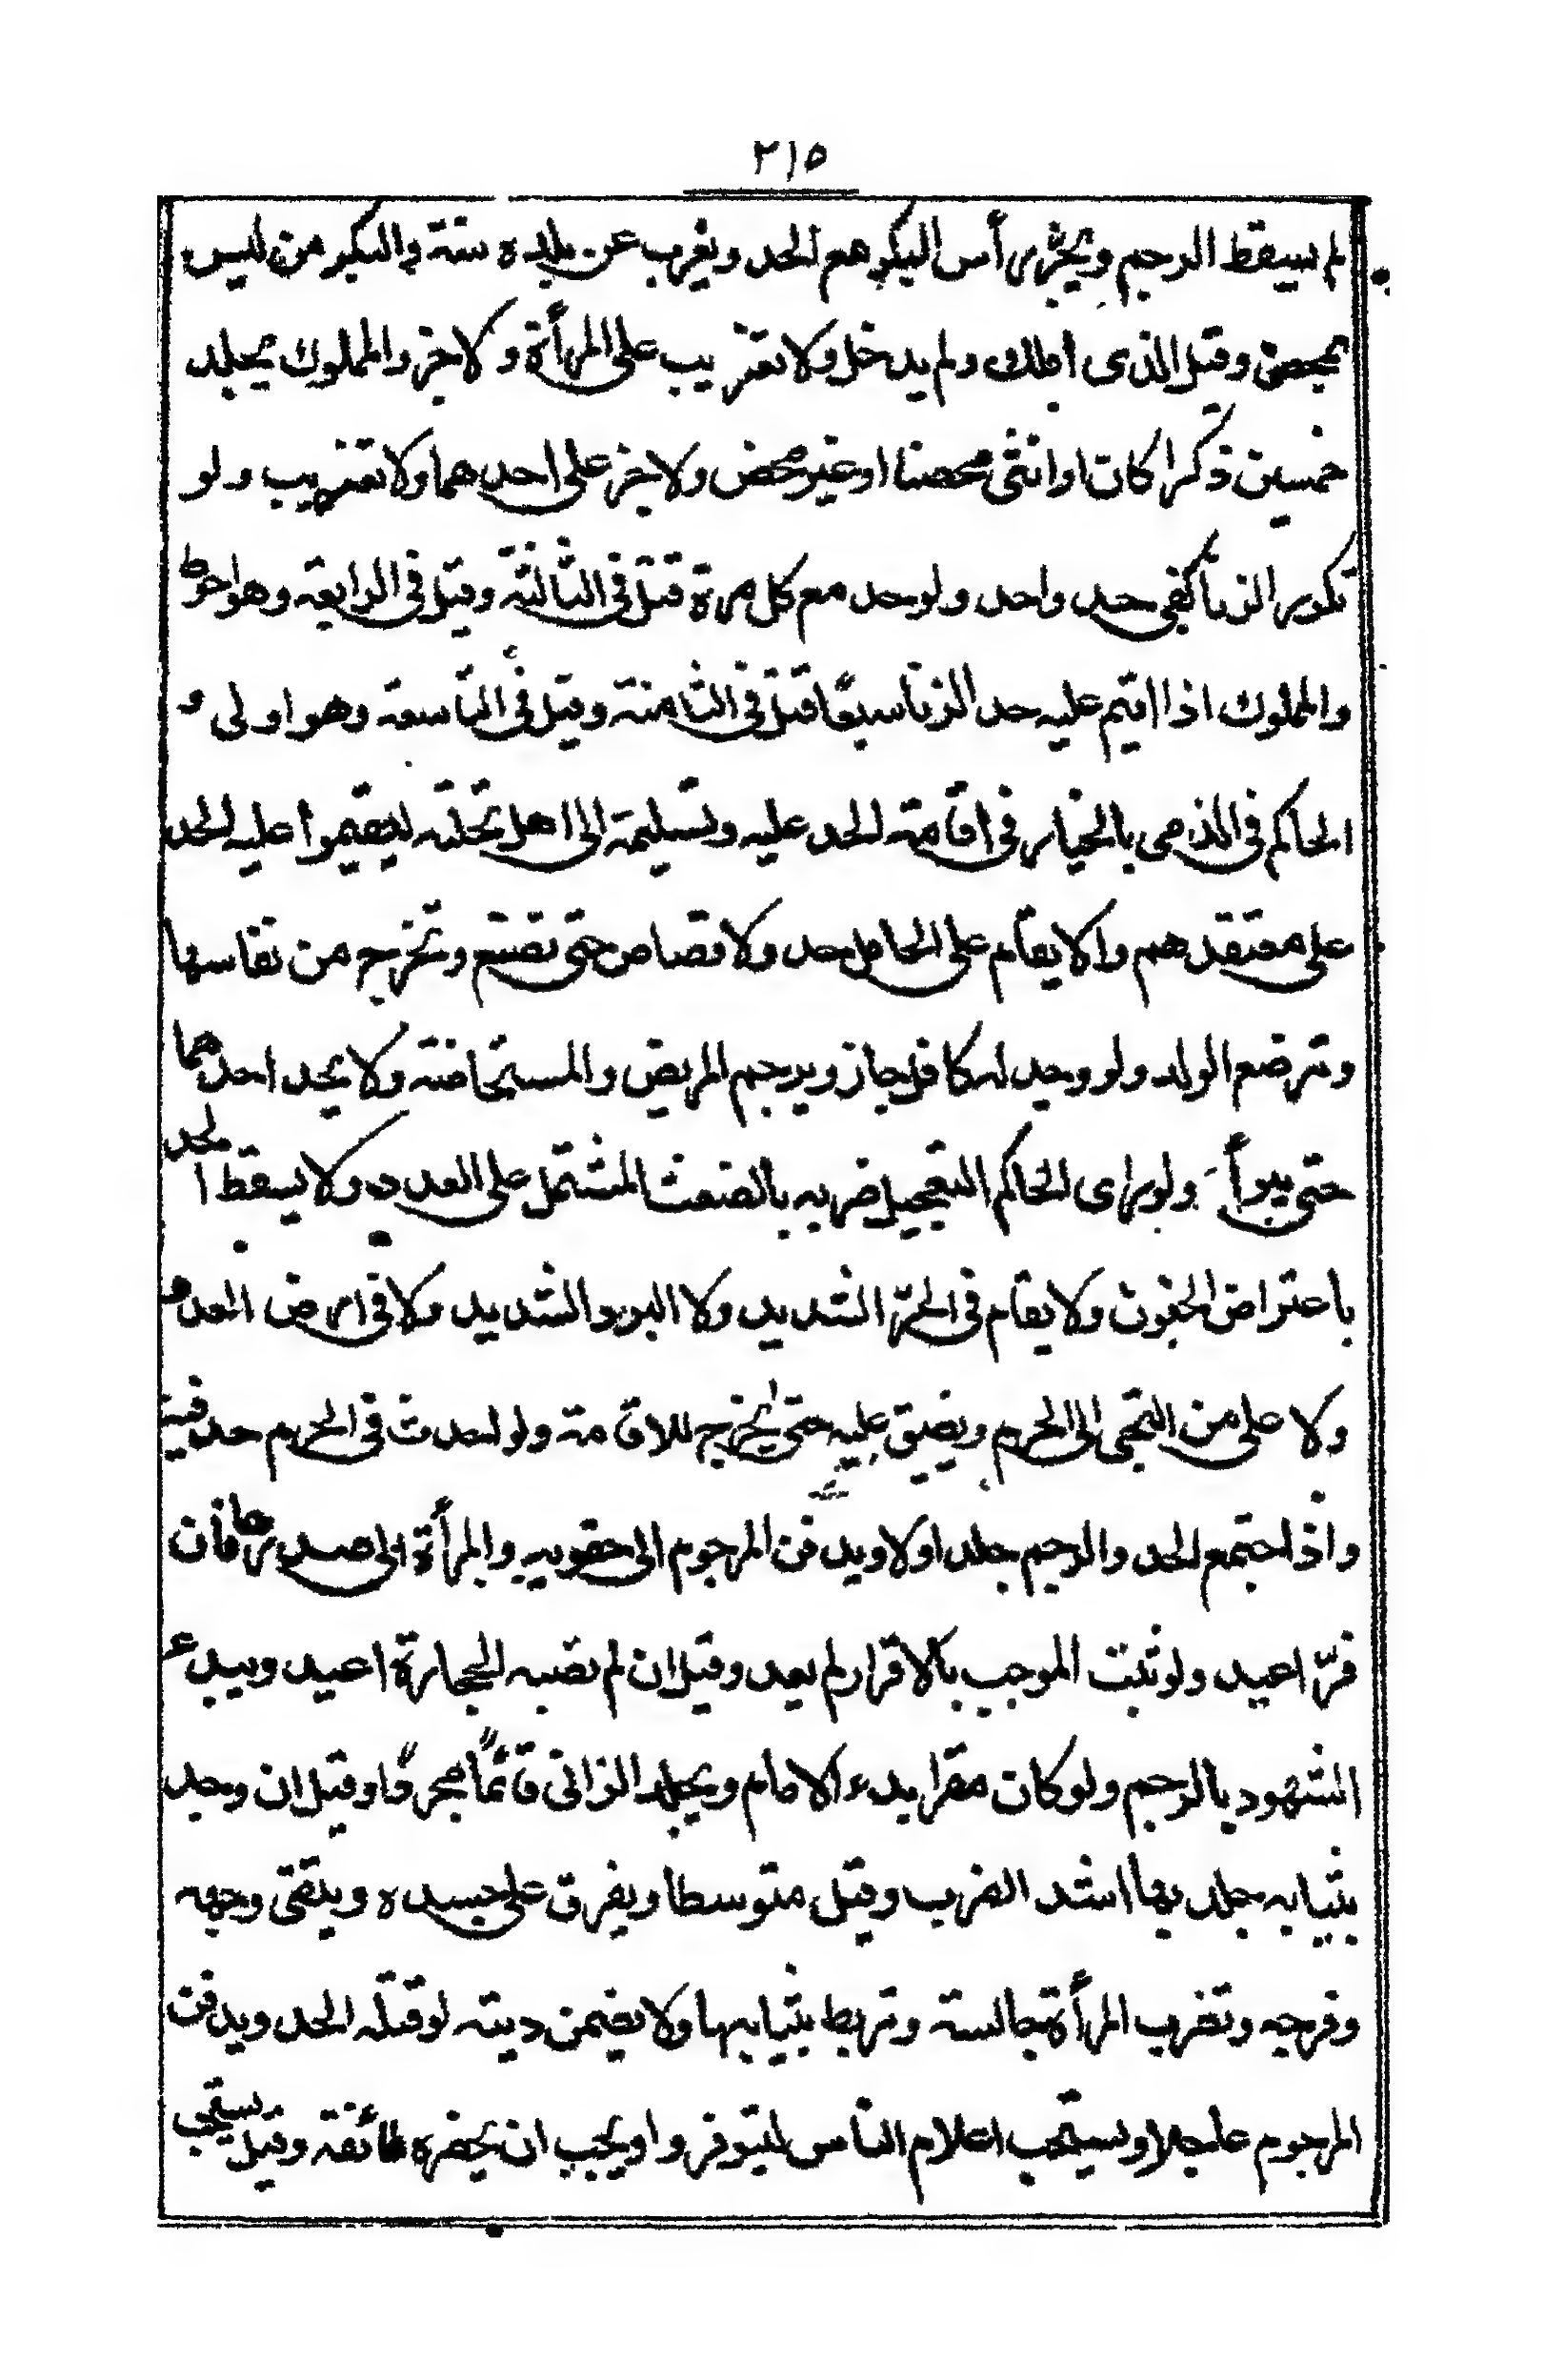 ٢١٥
لم يسقط الرجم ويجز رأس البكر مع الحد ويغرب عن بلده سنة والبكر من ليس
بمحصن وقيل الذى املك ولم يدخل ولا تغريب على المرأة ولا جز والمملوك يجلد
خمسين ذكرا كان او انثى محصنا او غير محصن ولا جز على احدهما ولا تغريب ولو
تكرر الزنا كفى حد واحد ولو حد مع كل مرة قتل فى الثالثة وقيل فى الرابعة وهو احوط
والمملوك اذا اقيم عليه حد الزنا سبعًا قتل فى الثامنة وقيل فى التاسعة وهو اولى و
الحاكم فى الذمى بالخيار فى اقامة الحد عليه وتسليمه الى اهل نحلته ليقيموا عليه الحد
على معتقدهم ولا يقام على الحامل حد ولا قصاص حتى تضع وتخرج من نفاسها
وترضع الولد ولو وجد له كافل جاز ويرجم المريض والمستحاضة ولا يحد احدهما
حتى يبرأ ولو رأى الحاكم التعجيل ضربه بالضغث المشتمل على العدد ولا يسقط الحد
باعتراض الجنون ولا يقام فى الحرّ الشديد ولا البرد الشديد ولا فى ارض العدو
ولا على من التجى الى الحرم ويضيق عليه حتى يخرج للاقامة ولو احدث فى الحرم حد فيه
واذا اجتمع الحد والرجم جلد اولا ويدفن المرجوم الى حقويه والمرأة الى صدرها فان
فرّ اعيد ولو ثبت الموجب بالاقرار لم يعد وقيل ان لم تصبه الحجارة اعيد ويبدء
الشهود بالرجم ولو كان مقرا بدء الامام ويجلد الزانى قائمًا مجردًا وقيل ان وجد
بثيابه جلد بها اشد الضرب وقيل متوسطا ويفرق على جسده ويتقى وجهه
وفرجه وتضرب المرأة جالسة وتربط بثيابها ولا يضمن ديته لو قتله الحد ويدفن
المرجوم عاجلا ويستحب اعلام الناس ليتوفروا ويجب ان يحضره طائفة وقيل يستحب